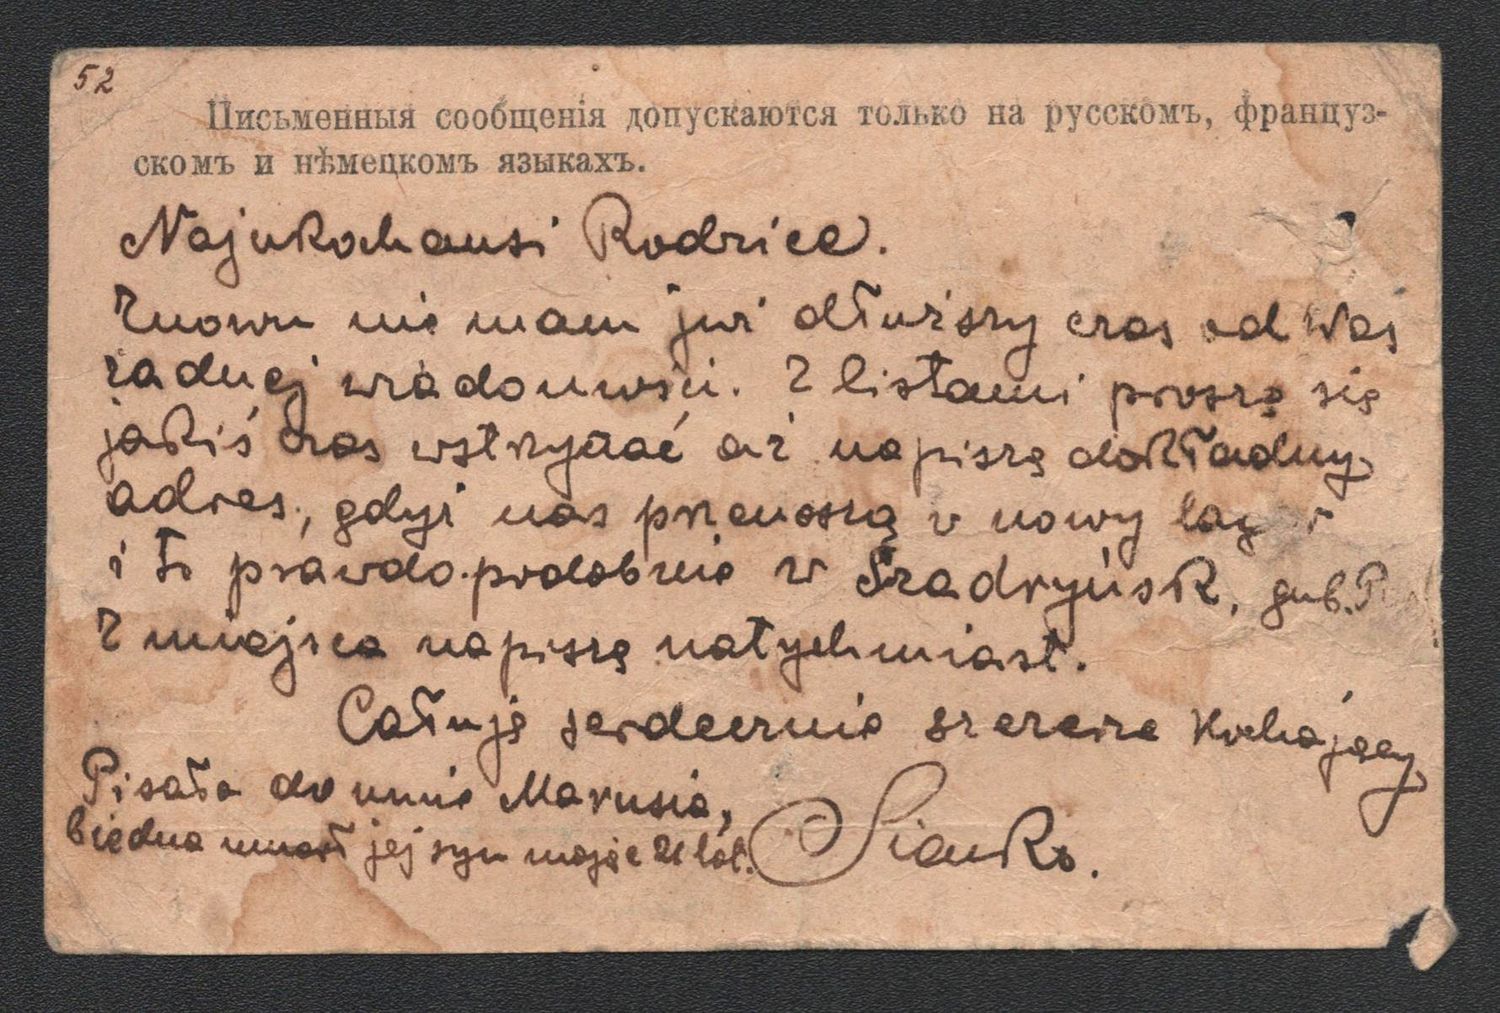 52
Письменныя сообщенія допускаются только на русскомъ, француз-
скомъ и нѣмецкомъ языкахъ.
Najukochansi Rodzice.
Znowu nie mam już dłuższy czas od Was
żadnej wiadomości. Z listami proszę się
jakiś czas wstrzymać aż napiszę dokładny
adres, gdyż nas przenoszą w nowy
i to prawdopodobnie w Szadryńsk, gub. P
Z miejsca napiszę natychmiast.
Całuję serdecznie szczerze kochający
Pisała do mnie Marusia,
biedna umarł jej syn mając 21 lat.
Sianko.